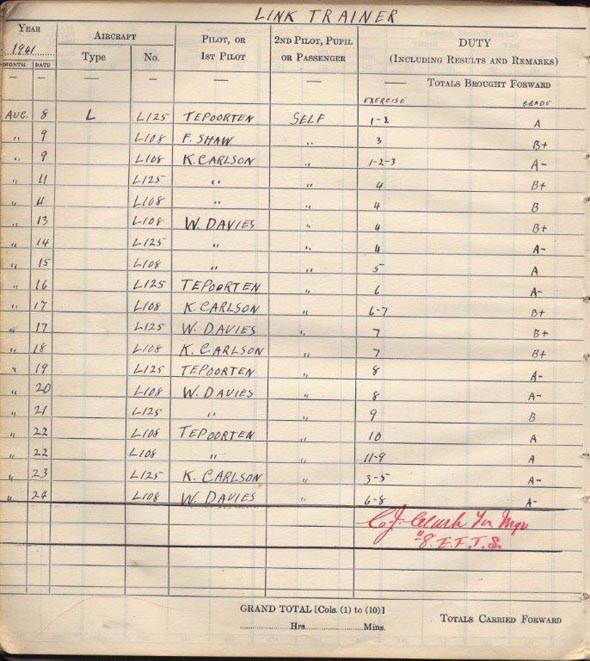 LINK TRAINER
YEAR AIRCRAFT PILOT, OR 2ND PILOT, PUPIL DUTY
1941 Type No. 1ST PILOT OR PASSENGER (INCLUDING RESULTS AND REMARKS)
MONTH DATE
— — — — — — — TOTALS BROUGHT FORWARD
EXERCISE GRADE
AUG. 8 L L125 TEPOORTEN SELF 1-2 A
" 9 L108 F. SHAW " 3 B+
" 9 L108 K. CARLSON " 1-2-3 A-
" 11 L125 " " 4 B+
" 11 L108 " " 4 B
" 13 L108 W. DAVIES " 4 B+
" 14 L125 " " 4 A-
" 15 L108 " " 5 A
" 16 L125 TEPOORTEN " 6 A-
" 17 L108 K. CARLSON " 6-7 B+
" 17 L125 W. DAVIES " 7 B+
" 18 L108 K. CARLSON " 7 B+
" 19 L125 TEPOORTEN " 8 A-
" 20 L108 W. DAVIES " 8 A-
" 21 L125 " " 9 B
" 22 L108 TEPOORTEN " 10 A
" 22 L108 " " 11-9 A
" 23 L125 K. CARLSON " 3-5 A-
" 24 L108 W. DAVIES " 6-8 A-
C.J. Clark For
#8. E.F.T.S.
GRAND TOTAL [Cols. (1) to (10)] TOTALS CARRIED FORWARD
Hrs Mins.